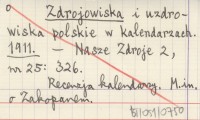 Zdrojowiska i uzdro-
wiska polskie w kalendarzach.
1911. — Nasze Zdroje 2,
nr 25: 326.
Recenzja kalendarzy. M.in.
o Zakopanem.